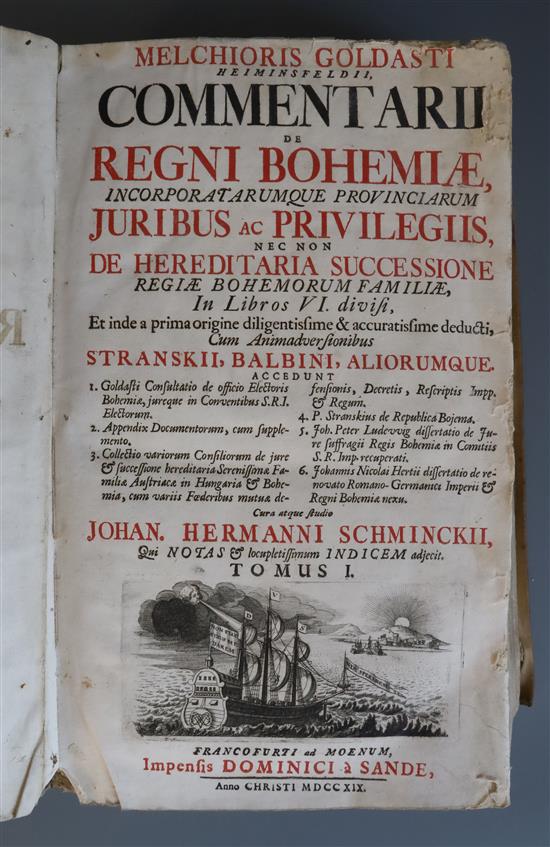 MELCHIORIS GOLDASTI
HEIMINSFELDII,
COMMENTARII
DE
REGNI BOHEMIÆ,
INCORPORATARUMQUE PROVINCIARUM
JURIBUS AC PRIVILEGIIS,
NEC NON
DE HEREDITARIA SUCCESSIONE
REGIÆ BOHEMORUM FAMILIÆ,
In Libros VI. divisi,
Et inde a prima origine diligentissime & accuratissime deducti,
Cum Animadversionibus
STRANSKII, BALBINI, ALIORUMQUE.
ACCEDUNT
1. Goldasti Consultatio de officio Electoris
Bohemiæ, jureque in Conventibus S.R.I.
Electorum.
2. Appendix Documentorum, cum supple-
mento.
3. Collectio variorum Consiliorum de jure
& successione hereditaria Serenissimæ Fa-
miliæ Austriacæ in Hungaria & Bohe-
mia, cum variis Fœderibus mutuæ de-
fensionis, Decretis, Rescriptis Impp.
& Regum.
4. P. Stranskius de Republica Bojema.
5. Joh. Peter Ludewig dissertatio de Ju-
re suffragii Regis Bohemiæ in Comitiis
S. R. Imp. recuperati.
6. Johannis Nicolai Hertii dissertatio de re-
novato Romano-Germanici Imperii &
Regni Bohemiæ nexu.
Cura atque studio
JOHAN. HERMANNI SCHMINCKII,
Qui NOTAS & locupletissimum INDICEM adjecit.
TOMUS I.
D V S
FRANCOFURTI ad MOENUM,
Impensis DOMINICI à SANDE,
Anno CHRISTI MDCCXIX.